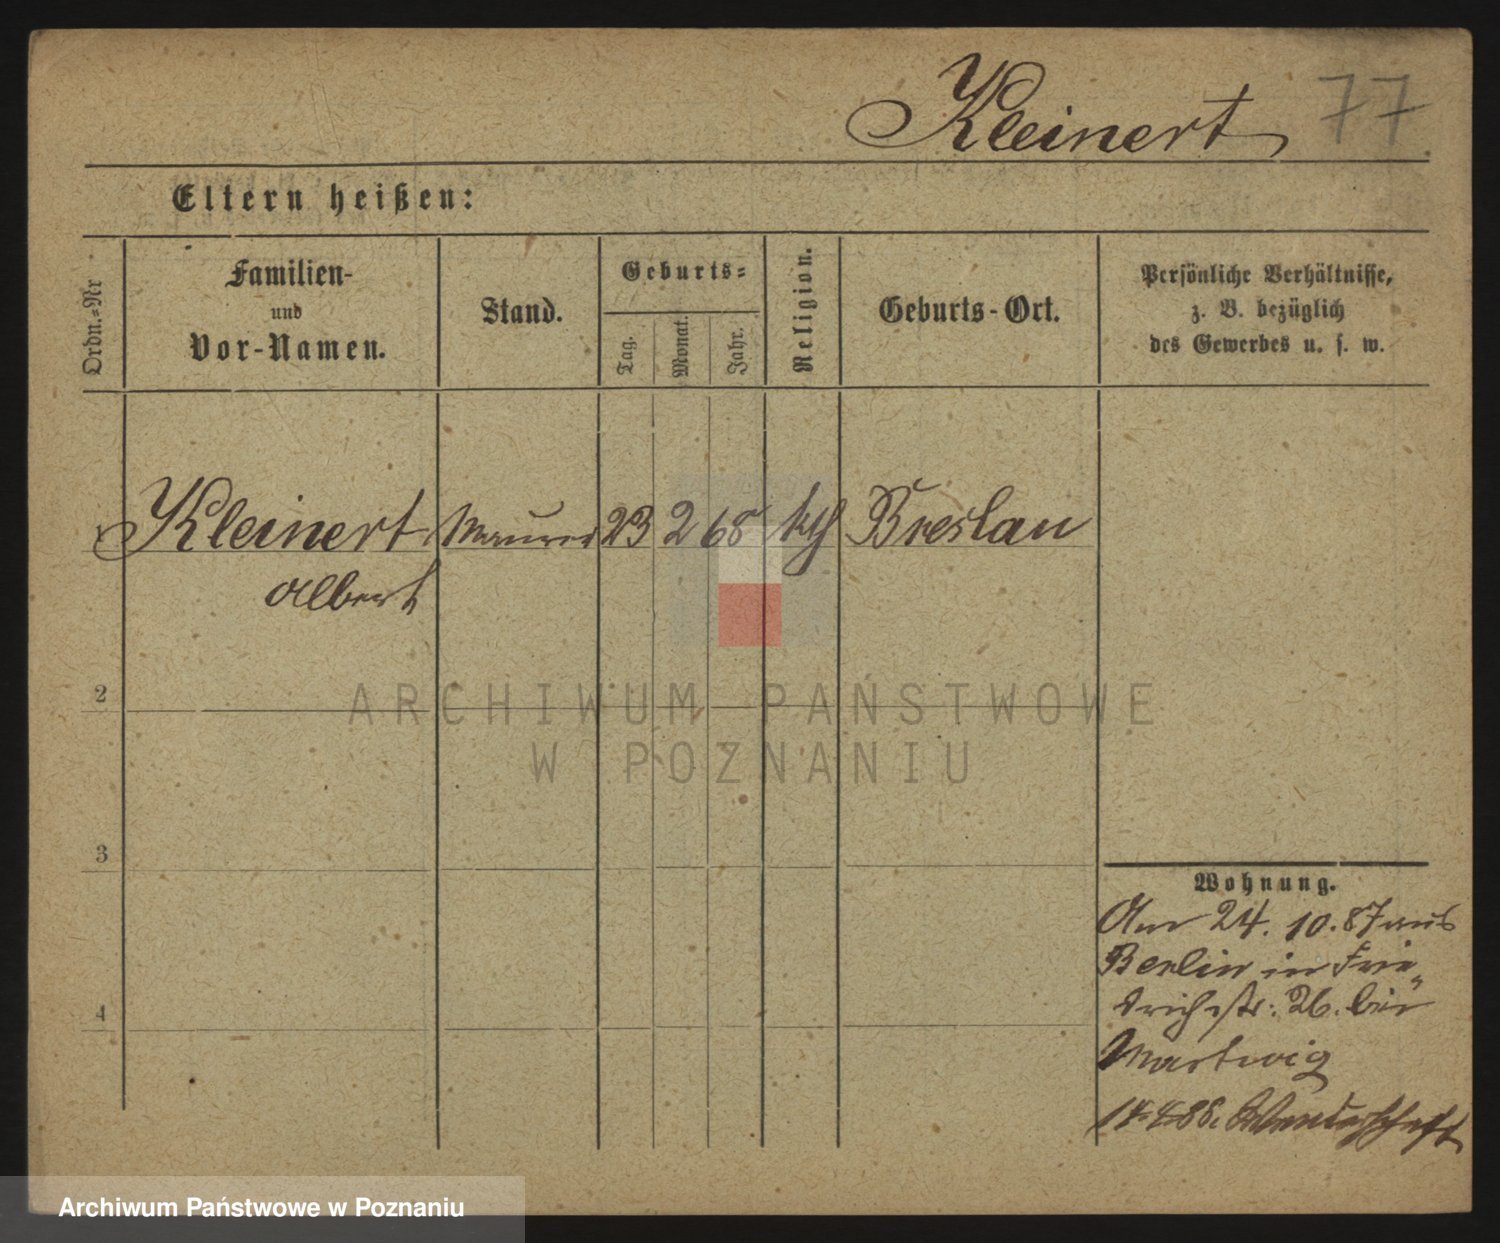 Kleinert 77
Eltern heißen:
Ordn.=Nr
Familien-
und
Vor-Namen.
Stand.
Geburts=
Tag.
Monat.
Jahr.
Religion.
Geburts-Ort.
Persönliche Verhältnisse,
z. B. bezüglich
des Gewerbes u. s. w.
1 Kleinert Maurer 23 2 68 kth Breslau
Albert
2
3
4
Wohnung.
Am 24. 10. 87 aus
Berlin in Frie„
drichstr: 26. bei
Martwig
88. Wanderschaft
ARCHIWUM PAŃSTWOWE
W POZNANIU
Archiwum Państwowe w Poznaniu